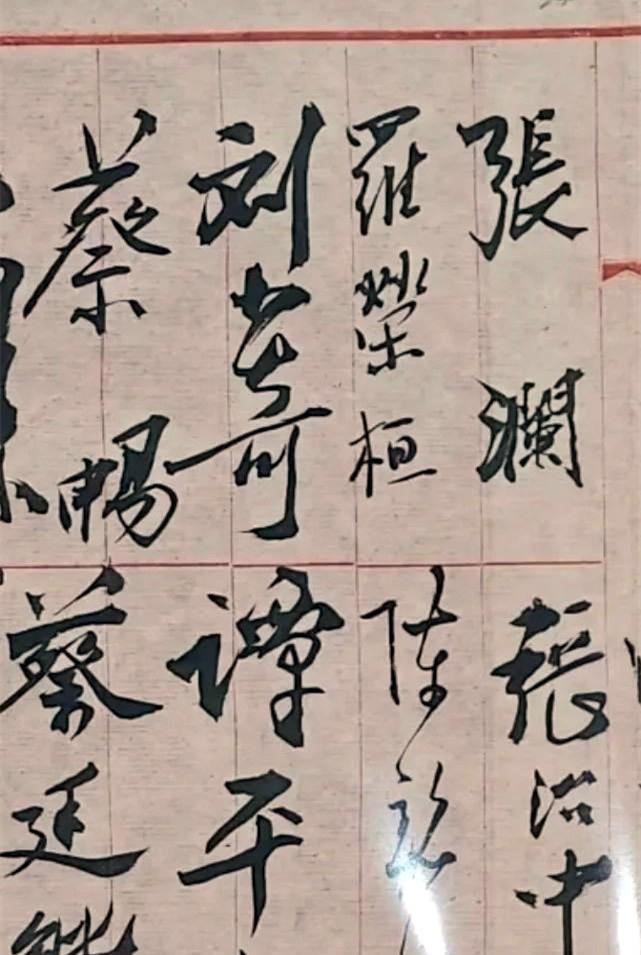 張瀾
羅榮桓
刘少奇
蔡暢
張治中
陈
譚平
蔡廷